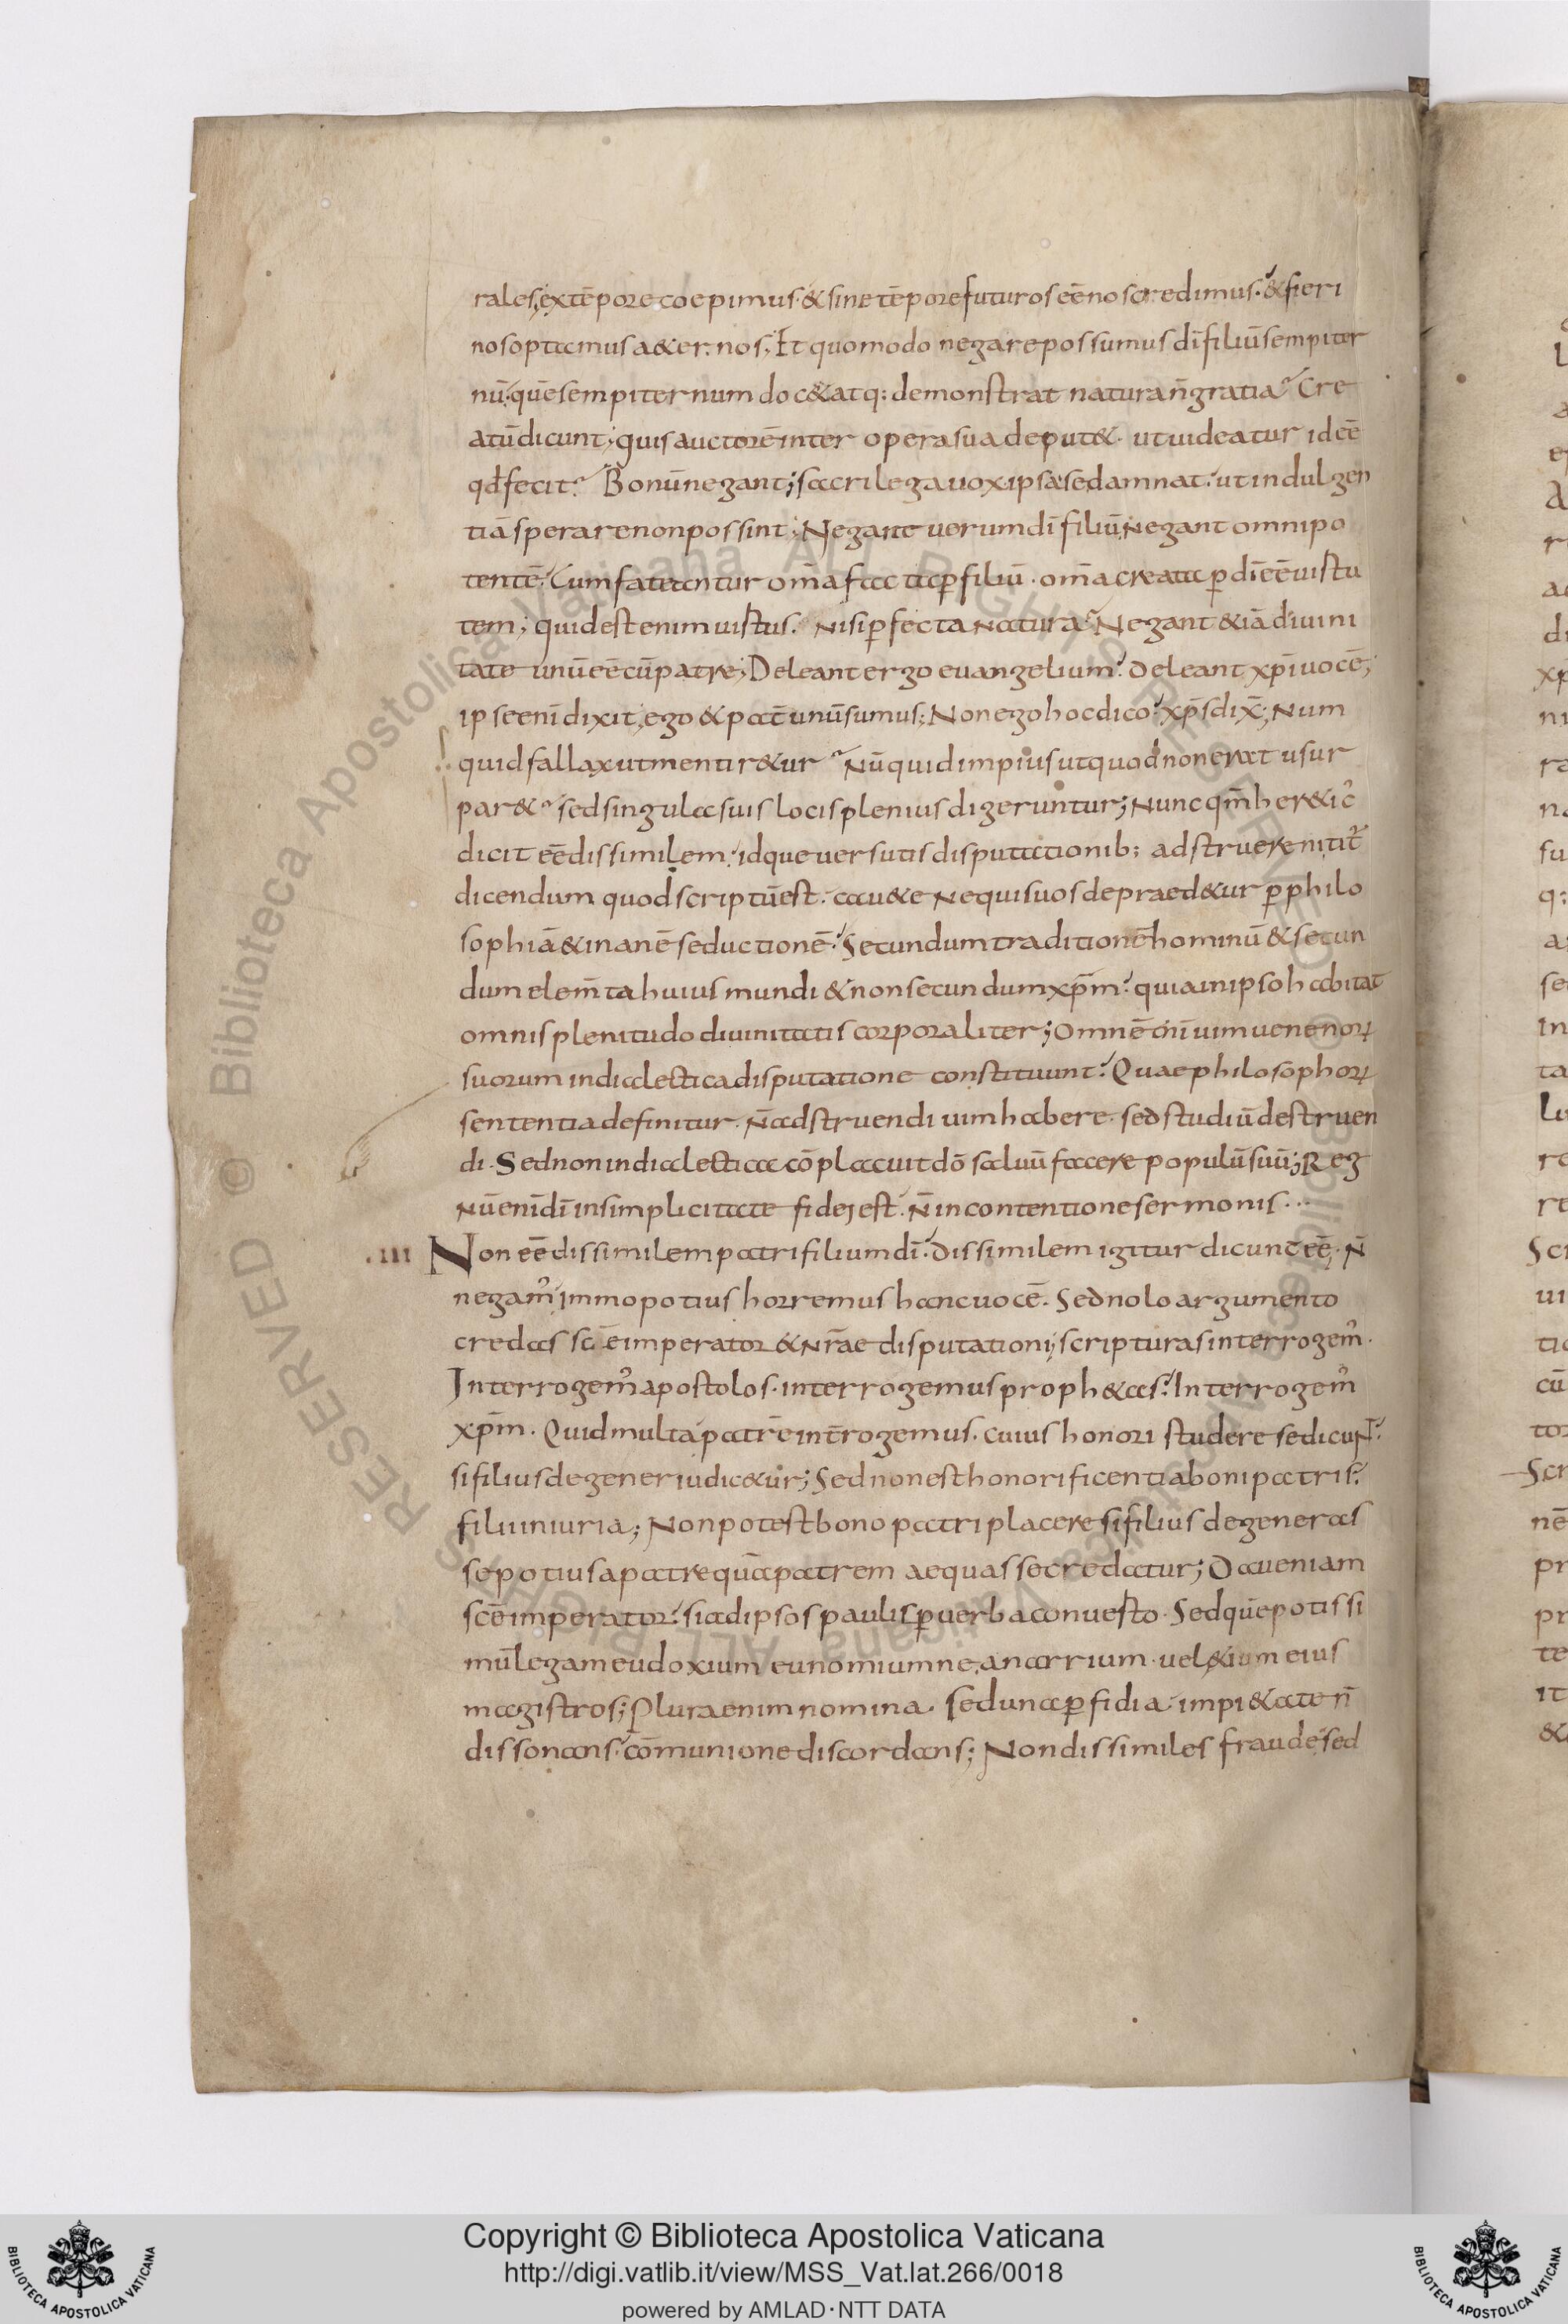 rales; ex tēpore coepimus · & sine tēpore futuros eē nos credimus · & fieri
nos optamus a&er.nos; Et quomodo negare possumus dī filiū sempiter
nū · quē sempiternum doc& atq: demonstrat natura n̄ gratia? Cre
atū dicunt; quis auctorē inter opera sua deput& · ut uideatur id eē
qđ fecit? Bonū negant; sacrilega uox ipsa se damnat · ut indulgen
tiā sperare non possint; Negant uerum dī filiū, Negant omnipo
tentē · Cum fateantur om̄a facta ꝑ filiū · om̄a creata ꝑ dī eē uirtu
tem; quid est enim uirtus? Nisi ꝑfecta Natura? Negant &iā diuini
tate unū eē cū patre; Deleant ergo euangelium · deleant xp̄i uocē;
ipse enī dixit, ego & pat̄ unū sumus; Non ego hoc dico · xp̄s dix̄; Num
quid fallax ut mentir&ur? Nū quid impius ut quod non erat usur
par&? sed singula suis locis plenius digeruntur; Nunc qm̄ her&ic᾽
dicit eē dissimilem · idque uersutis disputationib; adstruere nitit᷑
dicendum quod scriptū est · cau&e Ne quis uos depraed&ur ꝑ philo
sophiā & inanē seductionē · Secundum traditionē hominū & secun
dum elem̄ta huius mundi & non secundum xp̄m · quia in ipso habitat
omnis plenitudo diuinitatis corporaliter; Omnē enī uim uenenoꝝ
suorum in dialectica disputatione constituunt · Quae philosophoꝝ
sententia definitur · N̄ adstruendi uim habere · sed studiū destruen
di · Sed non in dialectica cōplacuit dō saluū facere populū suū; Reg
Nū enī dī in simplicitate fidei est · N̄ in contentione sermonis · · ·
.III Non eē dissimilem patri filium dī · Dissimilem igitur dicunt eē · N̄
negam᾽ immo potius horremus hanc uocē · Sed nolo argumento
credas sc̄e imperator & Nr̄ae disputationi; scripturas interrogem᾽ ·
Interrogem᾽ apostolos · interrogemus proph&as · Interrogem᾽
xp̄m · Quid multa patrē int̄rogemus · cuius honori studere se dicuNT ·
si filius degener iudic&ur; Sed non est honorificentia boni patris ·
filii iniuria; Non potest bono patri placere si filius degeneras
se potius a patre quā patrem aequasse credatur; Da ueniam
sc̄e imperator · si ad ipsos paulisꝑ uerba conuerto · Sed quē potissi
mū legam eudoxium eunomiumne, an arrium · uel &ium eius
magistros; Plura enim nomina · sed una ꝑfidia · impi&ate n̄
dissonans · cōmunione discordans; Non dissimiles fraude sed
Copyright © Biblioteca Apostolica Vaticana
http://digi.vatlib.it/view/MSS_Vat.lat.266/0018
powered by AMLAD·NTT DATA